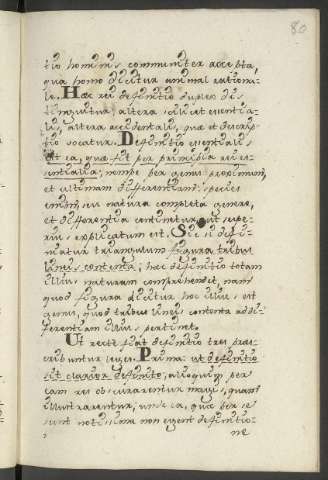 80
tio hominis communiter accepta,
qua homo dicitur animal rationa-
le. Hæc rei definitio duplex dis-
tinguitur, altera scilicet essentia-
lis, altera accidentalis, quæ et descrip-
tio vocatur. Definitio essentialis
est ea, quæ fit per principia rei es-
sentialia, nempe per genus proximum,
et ultimam differentiam: species
enim, seu natura completa genere,
et differentia continetur, ut supe-
rius explicatum est. Sic si defi-
niatur triangulum figura tribus
lineis contenta; hæc definitio totam
illius naturam comprehendit, nam
quod figura dicitur hoc illius est
genus, quod tribus lineis contenta ad dif-
ferentiam illius pertinet.
Ut recte fiat definitio tres præs-
cribuntur leges. Prima: ut definitio
sit clarior definito, alioquin per
eam res obscurarentur magis, quam
illustrarentur, unde ea, quæ per se
sunt notissima non egent definitio-
ne